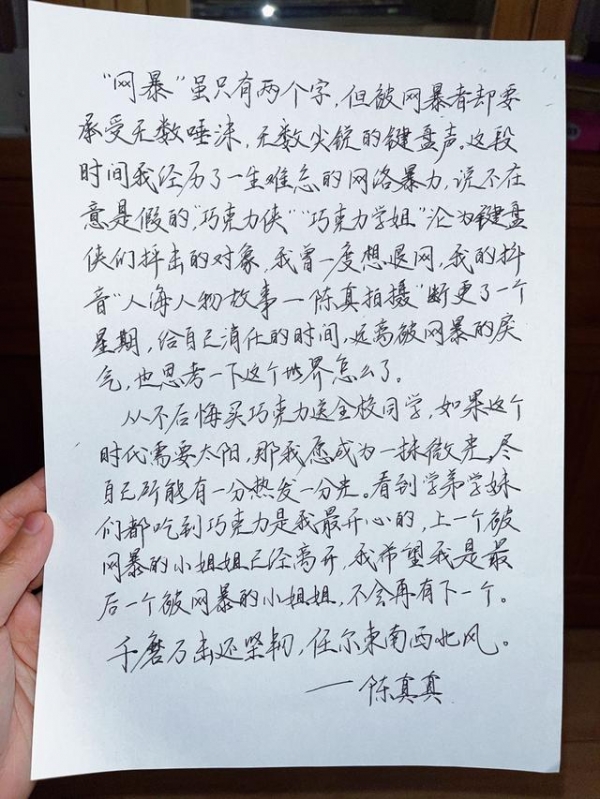 “网暴”虽只有两个字，但被网暴者却要
承受无数唾沫，无数尖锐的键盘声。这段
时间我经历了一生难忘的网络暴力，说不在
意是假的，“巧克力侠”“巧克力学姐”沦为键盘
侠们抨击的对象，我曾一度想退网，我的抖
音“人海人物故事—陈真拍摄”断更了一个
星期，给自己消化的时间，远离被网暴的戾
气，也思考一下这个世界怎么了。
从不后悔买巧克力送全校同学，如果这个
时代需要太阳，那我愿成为一抹微光。尽
自己所能有一分热发一分光。看到学弟学妹
们都吃到巧克力是我最开心的，上一个被
网暴的小姐姐已经离开，我希望我是最
后一个被网暴的小姐姐，不会再有下一个。
千磨万击还坚韧，任尔东南西北风。
——陈真真